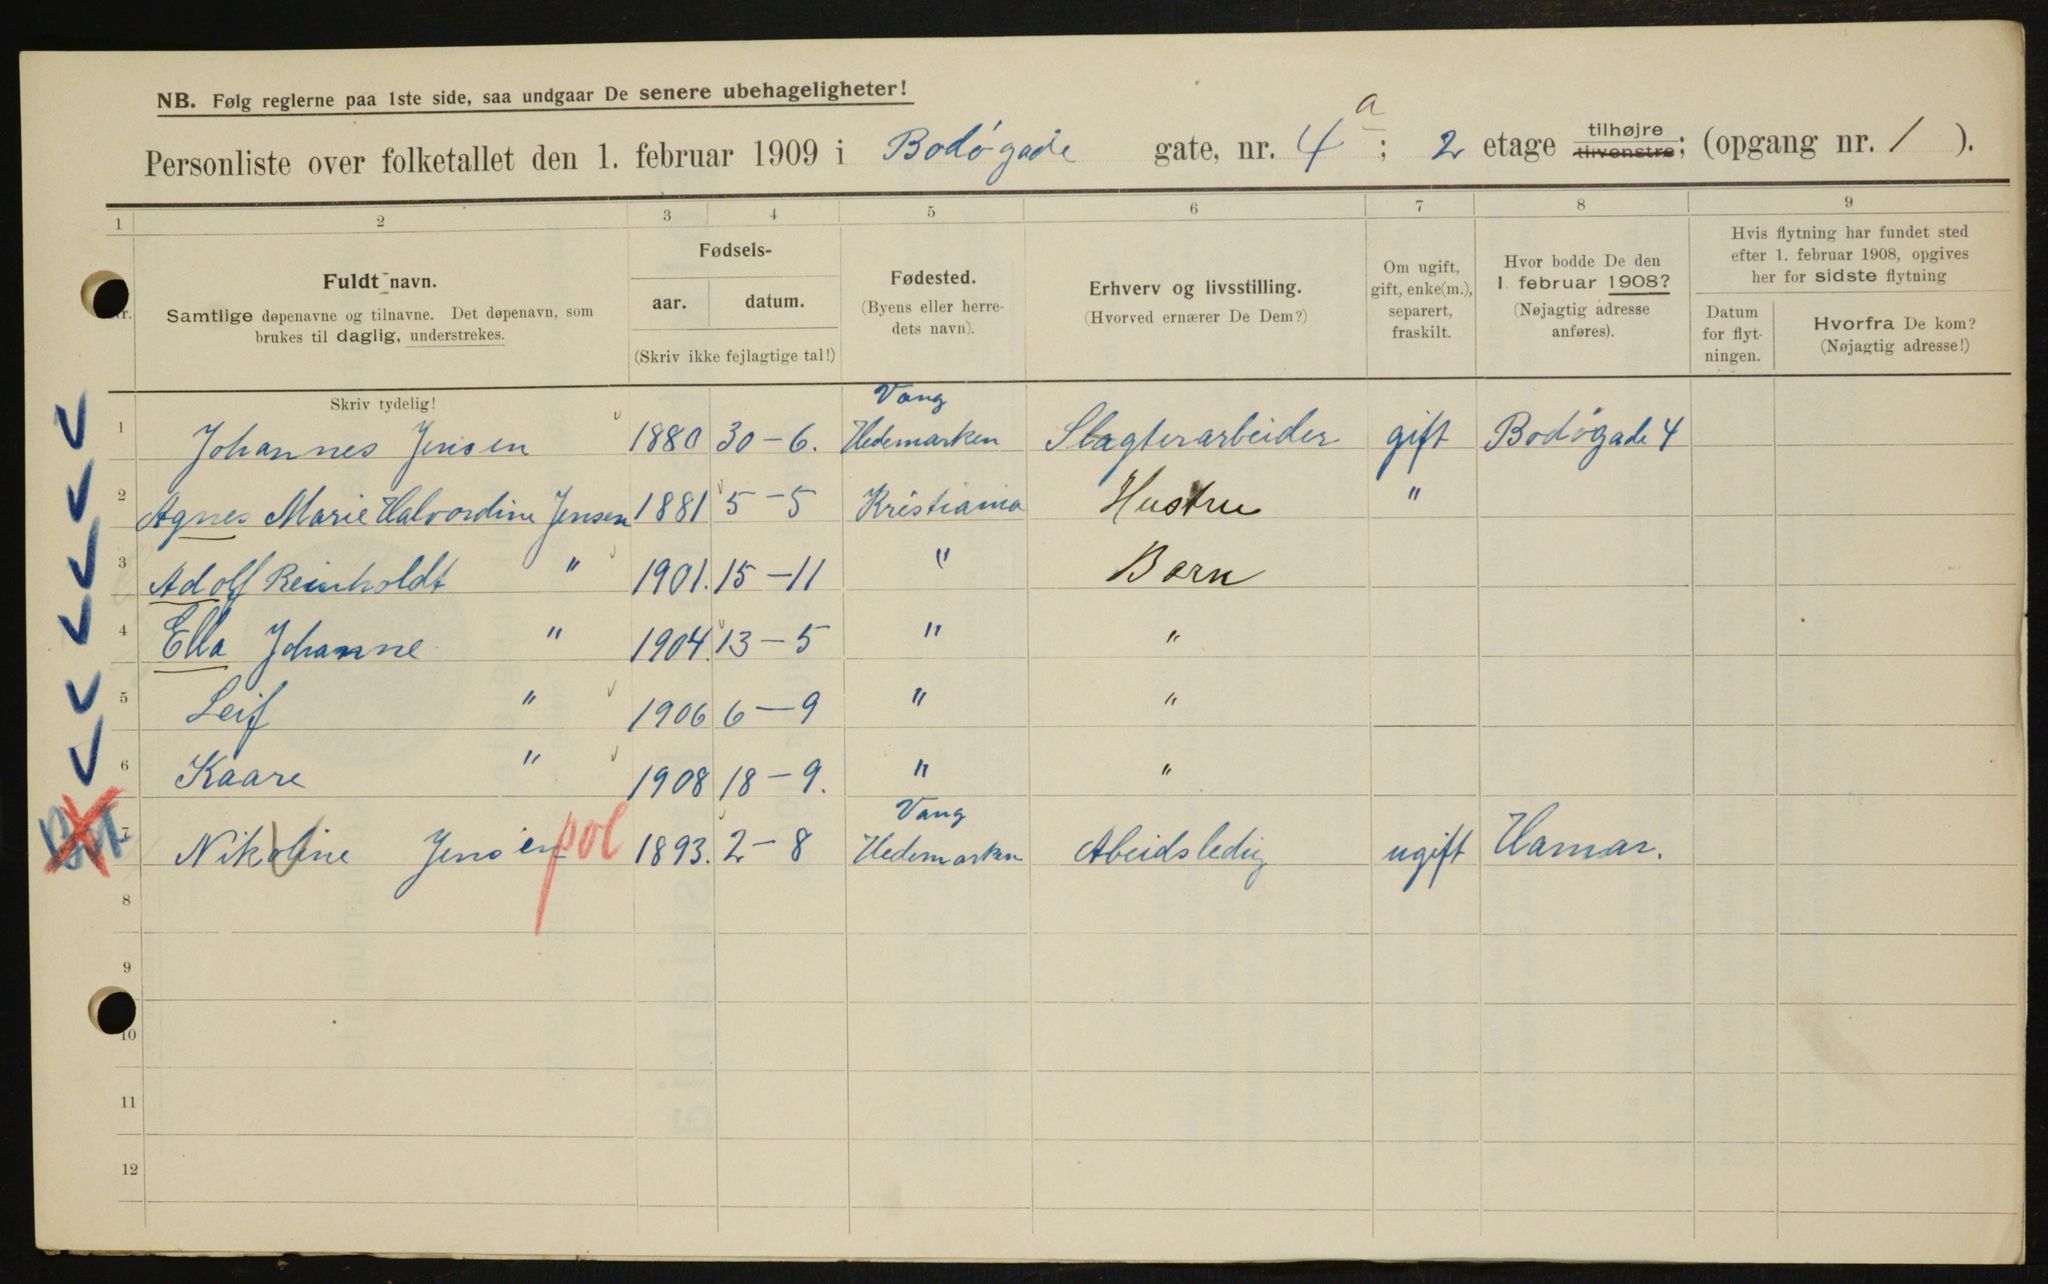 NB. Følg reglerne paa 1ste side, saa undgaar De senere ubehageligheter!
Personliste over folketallet den 1. februar 1909 i Bodøgade gate, nr. 4 a; 2 etage tilhøjre tilvenstre; (opgang nr. 1 ).
1 2 3 4 5 6 7 8 9
Nr.
Fuldt navn.
Samtlige døpenavne og tilnavne. Det døpenavn, som
brukes til daglig, understrekes.
Fødsels-
aar. datum.
(Skriv ikke fejlagtige tal!)
Fødested.
(Byens eller herre-
dets navn).
Erhverv og livsstilling.
(Hvorved ernærer De Dem?)
Om ugift,
gift, enke(m.),
separert,
fraskilt.
Hvor bodde De den
1 februar 1908?
(Nøjagtig adresse
anføres).
Hvis flytning har fundet sted
efter 1. februar 1908, opgives
her for sidste flytning
Datum
for flyt-
ningen.
Hvorfra De kom?
(Nøjagtig adresse!)
Skriv tydelig!
Vang
1 Johannes Jensen 1880 30-6. Hedemarken Slagterarbeider gift Bodøgade 4
2 Agnes Marie Halvordine Jensen 1881 5-5 Kristiania Hustru "
3 Adolf Reinholdt " 1901. 15-11 " Børn
4 Ella Johanne " 1904. 13-5 " "
5 Leif " 1906 6-9 " "
6 Kaare " 1908 18-9. " "
Vang
7 Nikoline Jensen pol 1893. 2-8 Hedemarken Abeidsledig ugift Hamar.
8
9
10
11
12